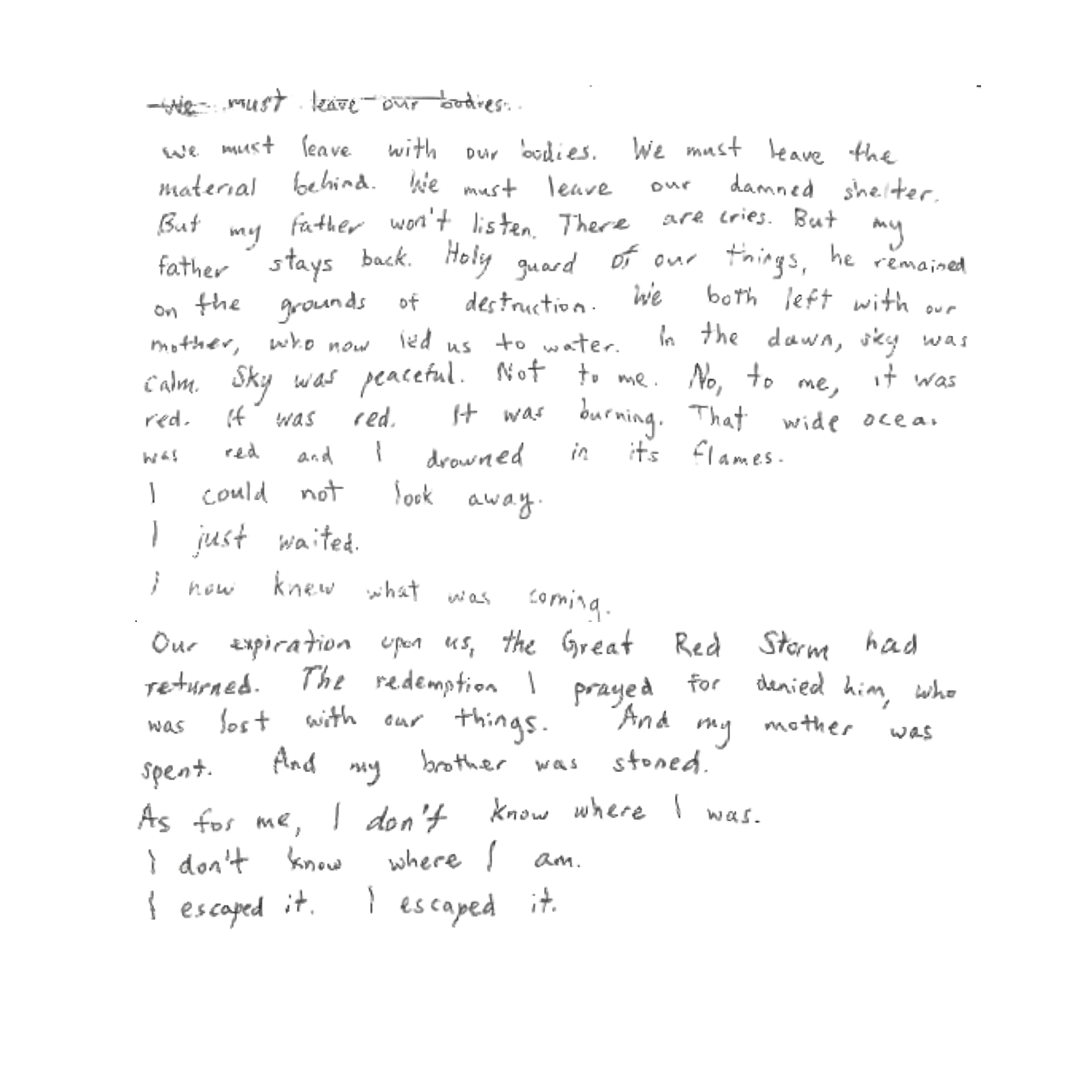 We must leave our bodies.
We must leave with our bodies. We must leave the
material behind. We must leave our damned shelter.
But my father won't listen. There are cries. But my
father stays back. Holy guard of our things, he remained
on the grounds of destruction. We both left with our
mother, who now led us to water. In the dawn, sky was
calm. Sky was peaceful. Not to me. No, to me, it was
red. It was red. It was burning. That wide ocean
was red and I drowned in its flames.
I could not look away.
I just waited.
I now knew what was coming.
Our expiration upon us, the Great Red Storm had
returned. The redemption I prayed for denied him, who
was lost with our things. And my mother was
spent. And my brother was stoned.
As for me, I don't know where I was.
I don't know where I am.
I escaped it. I escaped it.